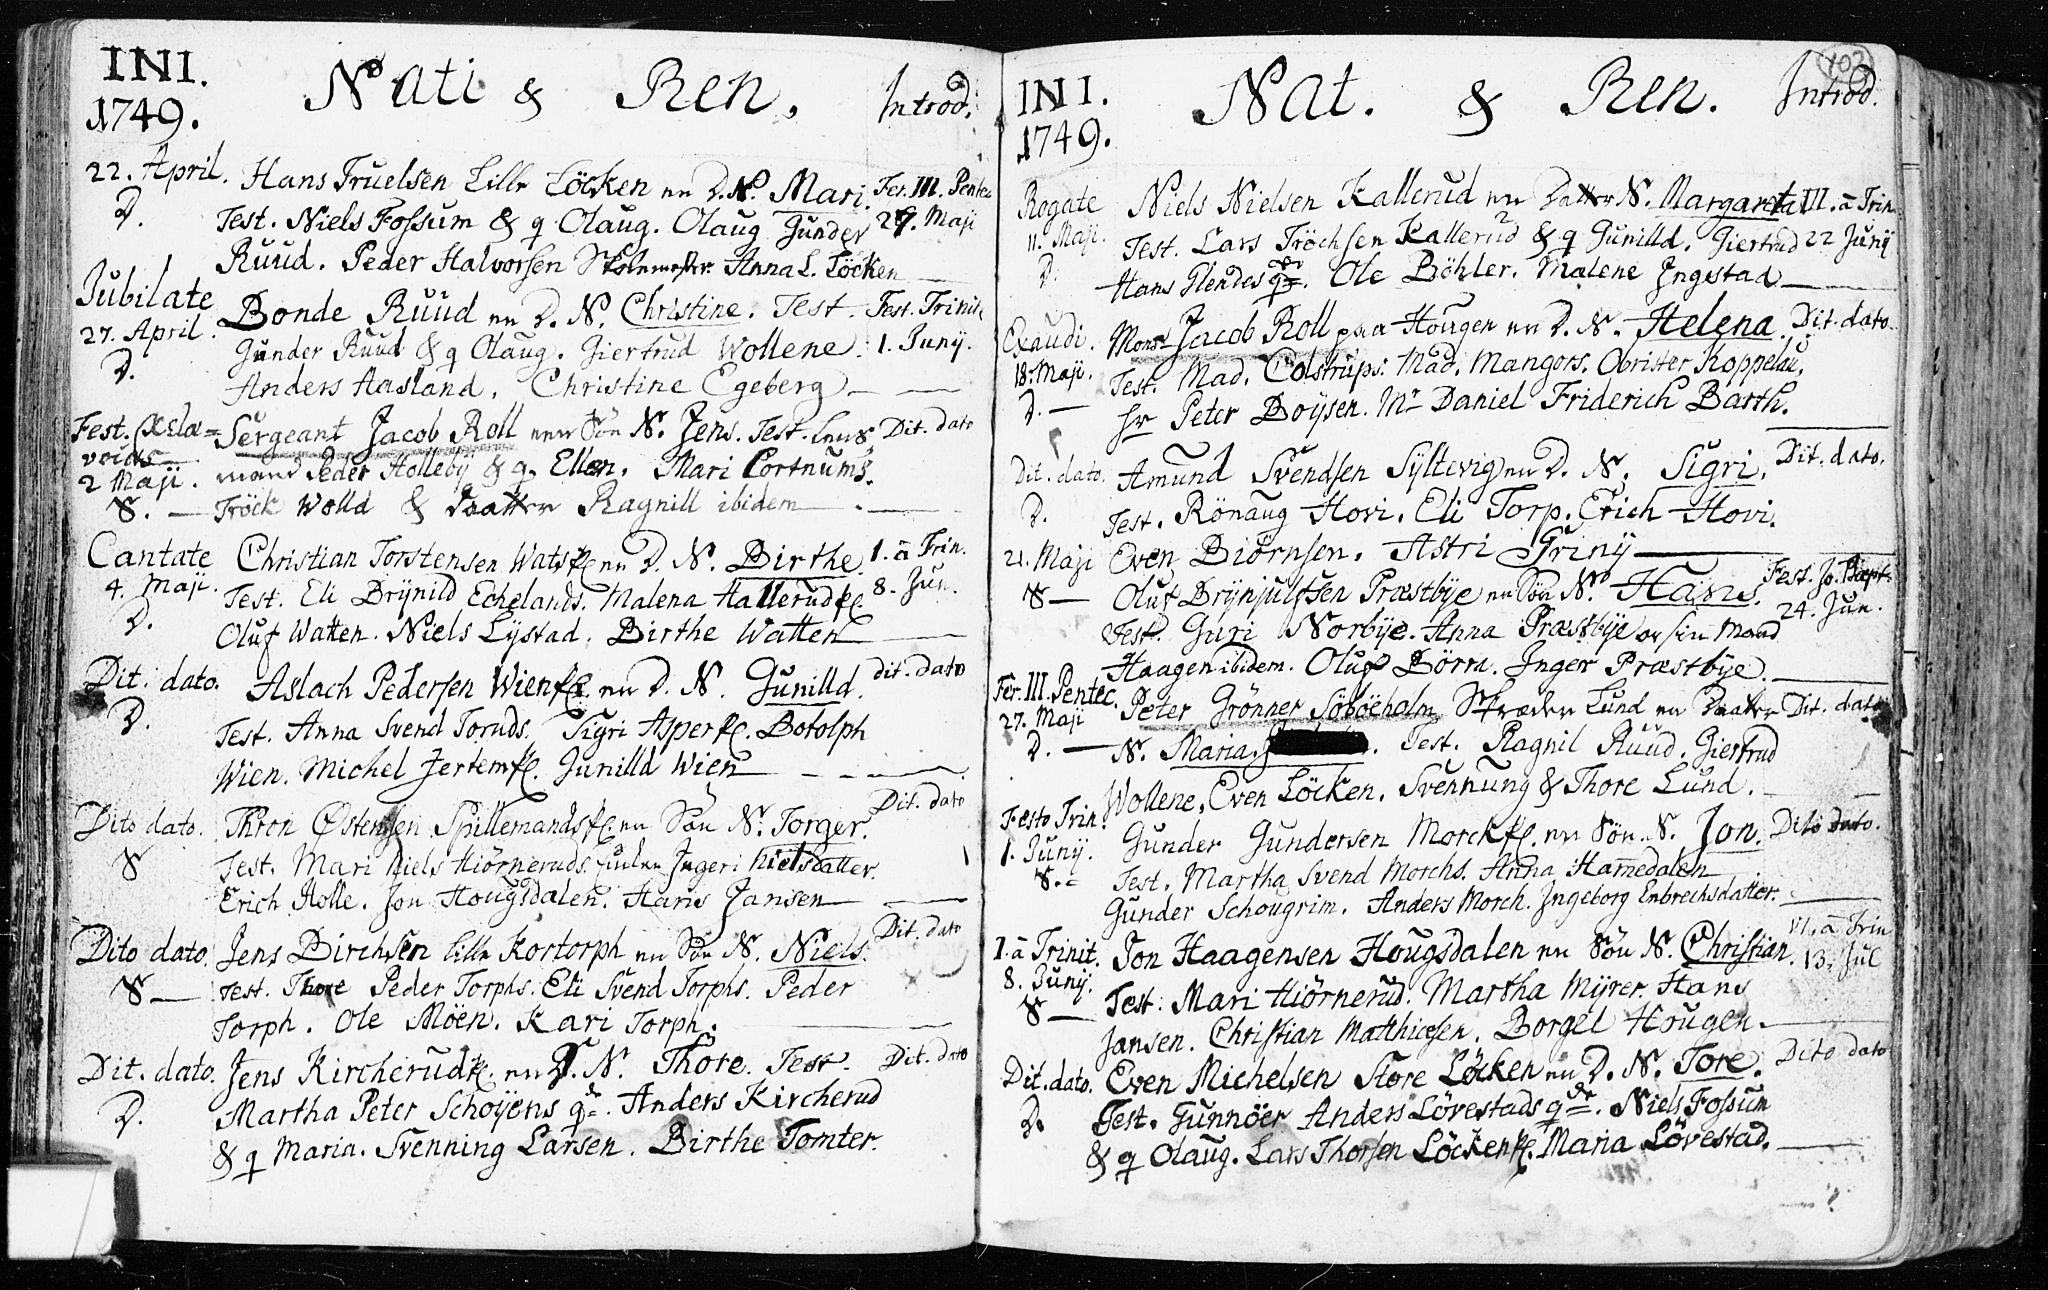 INI.
1749.
Nati & Ren.
Introd.
22. April. Hans Truelsen Lille Löcken en D. N. Mari. Fer. III. Pentec
D. Test. Niels Fossum & q Olaug. Olaug Gunder 27. Maji
Ruud. Peder Halvorsen Skolemester. Anna L. Löcken
Jubilate Bonde Ruud en D. N. Christine. Test. Fest. Trinit.
27. April. Gunder Ruud & q Olaug. Giertrud Wollene. 1. Juny.
D. Anders Aasland. Christine Egeberg
Fest. Sergeant Jacob Roll en Sön N. Jens. Test. Lens Dit. dato
2 Maji. mand Peder Holleby & q Ellen. Mari Cortnums.
S. Tröck Wolld & Daatter Ragnill ibidem
Cantate Christian Torstensen Watsk. en D. N. Birthe. 1. à Trin.
4. Maji. Test. Eli Brynild Echelands. Malena Hallerudk. 8. Jun.
D. Oluf Watten. Niels Lystad. Birthe Watten
Dit. dato. Aslach Pedersen Wiensk. en D. N. Gunilld. dit. dato
D. Test. Anna Svend Toruds. Sigri Aspersk. Botolph
Wien. Michel Jertemsk. Junilld Wien
Dito dato. Thron Østensen Spillemandsk. en Sön N. Torger. Dit. dato
S Test. Mari Niels Hiörneruds. Ingeri Nielsdatter.
Erich Holle. Jon Hougsdalen. Hans Jansen
Dito dato. Jens Birchsen Lille Kortorph en Sön N. Niels. Dit. dato
S Test. Thore Peder Torphs. Eli Svend Torphs. Peder
Torph. Ole Möen. Kari Torph.
Dit. dato. Jens Kircherudk. en D. N. Thore. Test. Dit. dato
D. Martha Peter Schoyens q. Anders Kircherud
& q Maria. Svenning Larsen. Birthe Tomter.
102
INI.
1749.
Nat. & Ren.
Introd.
Rogate Niels Nielsen Kallerud en Datter N. Margareta III. à Trin
11. Maji. Test. Lars Tröchsen Kallerud & q Gunilld. Giertrud 22 Juny
D. Hans Plendes q. Ole Böhler. Malene Ingstad
Exaudi. Monsr Jacob Roll paa Hougen en D. N. Helena. Dit. dato.
18. Maji. Test. Mad. Colstrups. Mad. Mangors. Obrister Koppelau.
D. Hr Peter Boysen. Mr Daniel Friderich Barth.
Dit. dato. Amund Svendsen Syltevig en D. N. Sigri. Dit. dato.
D. Test. Rönaug Hovi. Eli Torp. Erich Hovi.
Even Biörnsen. Astri Griny
21. Maji Oluf Brynjulfsen Præstbye en Sön N. Hans. Fest. Jo. Bapt.
S Test. Guri Norbye. Anna Præstbye og sin Mand 24. Jun.
Haagen ibidem. Oluf Börra. Inger Præstbye.
Fer. III. Pentec. Peter Grönner Söböeholm Skræder Lund en Daatter Dit. dato
27. Maji N. Maria. Test. Ragnil Ruud. Giertrud
D. Wollene. Even Löcken. Svennung & Thore Lund.
Festo Trin. Gunder Gundersen Morcksk. en Sön N. Jon. Dito dato.
1. Juny. Test. Martha Svend Morchs. Anna Hamedalen
S. Gunder Schougrim. Anders Morch. Ingeborg Enbrechsdatter.
1. à Trinit. Jon Haagensen Hougsdalen en Sön N. Christian. VI. à Trin
8. Juny. Test. Mari Hiörnerud. Martha Myrer. Hans 13. Jul
S Jansen. Christian Matthiesen. Borgel Hougen.
Dit. dato. Even Michelsen Store Löcken en D. N. Tore. Dito dato
D. Test. Gunnöer Anders Lövestads q. Niels Fossum
& q Olaug. Lars Thorsen Löckensk. Maria Lövestad.